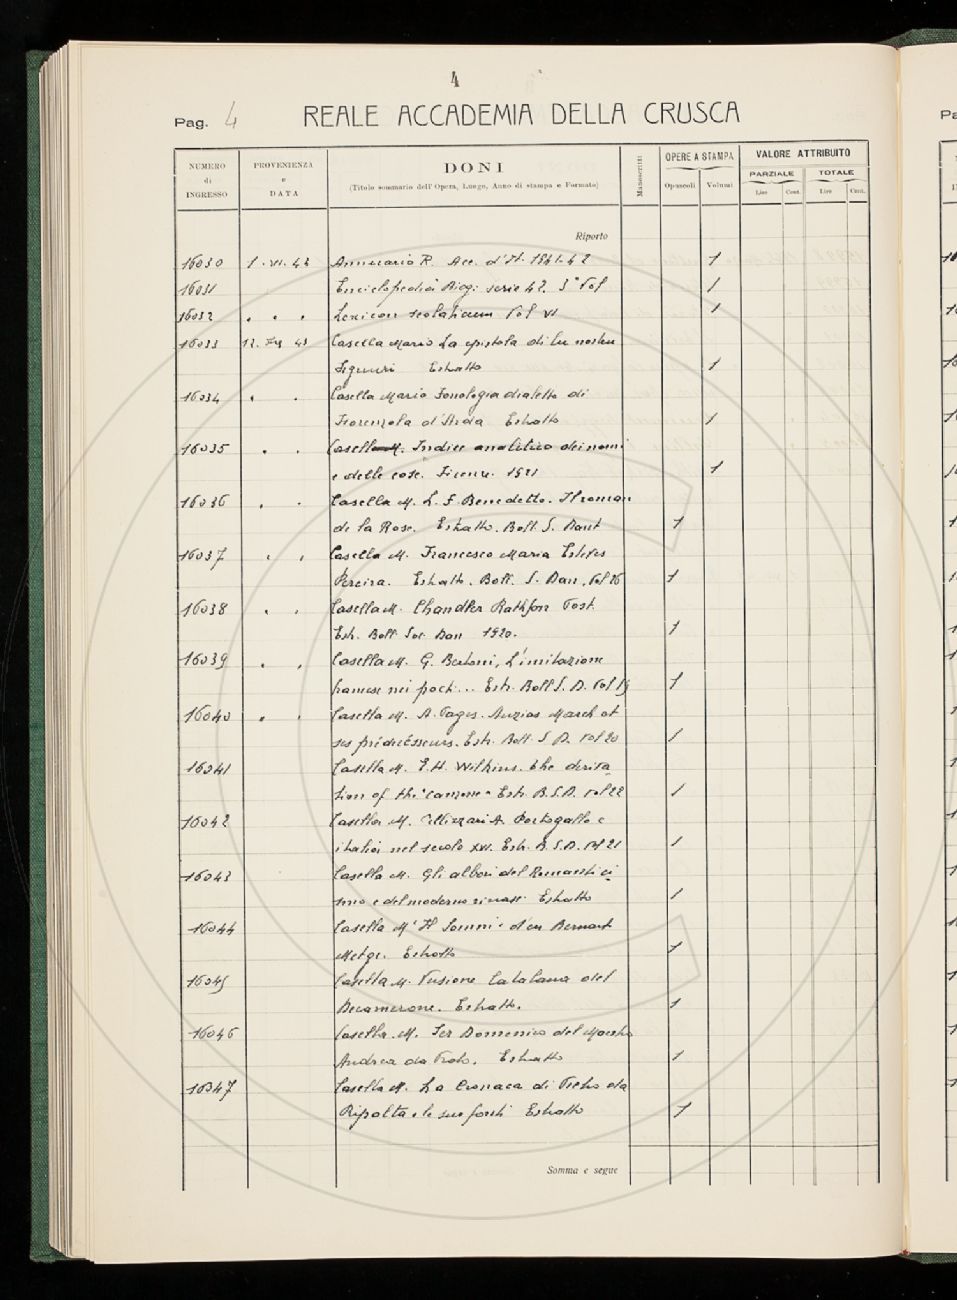 4
Pag. 4 REALE ACCADEMIA DELLA CRUSCA
NUMERO di INGRESSO
PROVENIENZA e DATA
DONI
(Titolo sommario dell'Opera, Luogo, Anno di stampa e Formato)
Manoscritti
OPERE A STAMPA
Opuscoli Volumi
VALORE ATTRIBUITO
PARZIALE TOTALE
Lire Cent. Lire Cent.
Riporto
16030 1. VI. 43 Annuario R. Acc. d'It. 1941-42 1
16031 Enciclopedia Biog: serie 42. 3° Vol 1
16032 " " " Lexicon Vol VI 1
16033 12. 43 Casella Mario La epistola di lu nostru
Signuri Estratto 1
16034 " " Casella Mario Fonologia dialetto di
Fiorenzola d'Arda Estratto 1
16035 " " Casella M. Indice analitico dei nomi
e delle cose. Firenze. 1921 1
16036 " " Casella M. L. F. Benedetto. Il roman
de la Rose. Estratto. Boll. S. Dant 1
16037 " " Casella M. Francesco Maria Esteves
Pereira. Estratto. Boll. S. Dan. Vol 26 1
16038 " " Casella M. Chandler Rathfon Post.
Estr. Boll Soc. Dan 1920. 1
16039 " " Casella M. G. Bertoni, L'imitazione
francese nei poeti... Estr. Boll S. D. Vol 19 1
16040 " " Casella M. A. Pages. Auzias March et
ses prédécesseurs. Estr. Boll. S D. Vol 20 1
16041 Casella M. E. H. Wilkins. The deriva
tion of the "canzone" Estr. B.S.D. Vol 22 1
16042 Casella M. Pellizzari A. Portogallo e
italia nel secolo XVI. Estr. B.S.D. Vol 21 1
16043 Casella M. Gli albori del Romantici
smo e del moderno rinasc. Estratto 1
16044 Casella M "Il Somni" d'en Bernart
Metge. Estratto 1
16045 Casella M. Versione Catalana del
Decamerone. Estratto. 1
16046 Casella. M. Ser Domenico del Maestro
Andrea da Prato. Estratto 1
16047 Casella M. La Cronaca di Pietro da
Ripalta e le sue fonti Estratto 1
Somma e segue